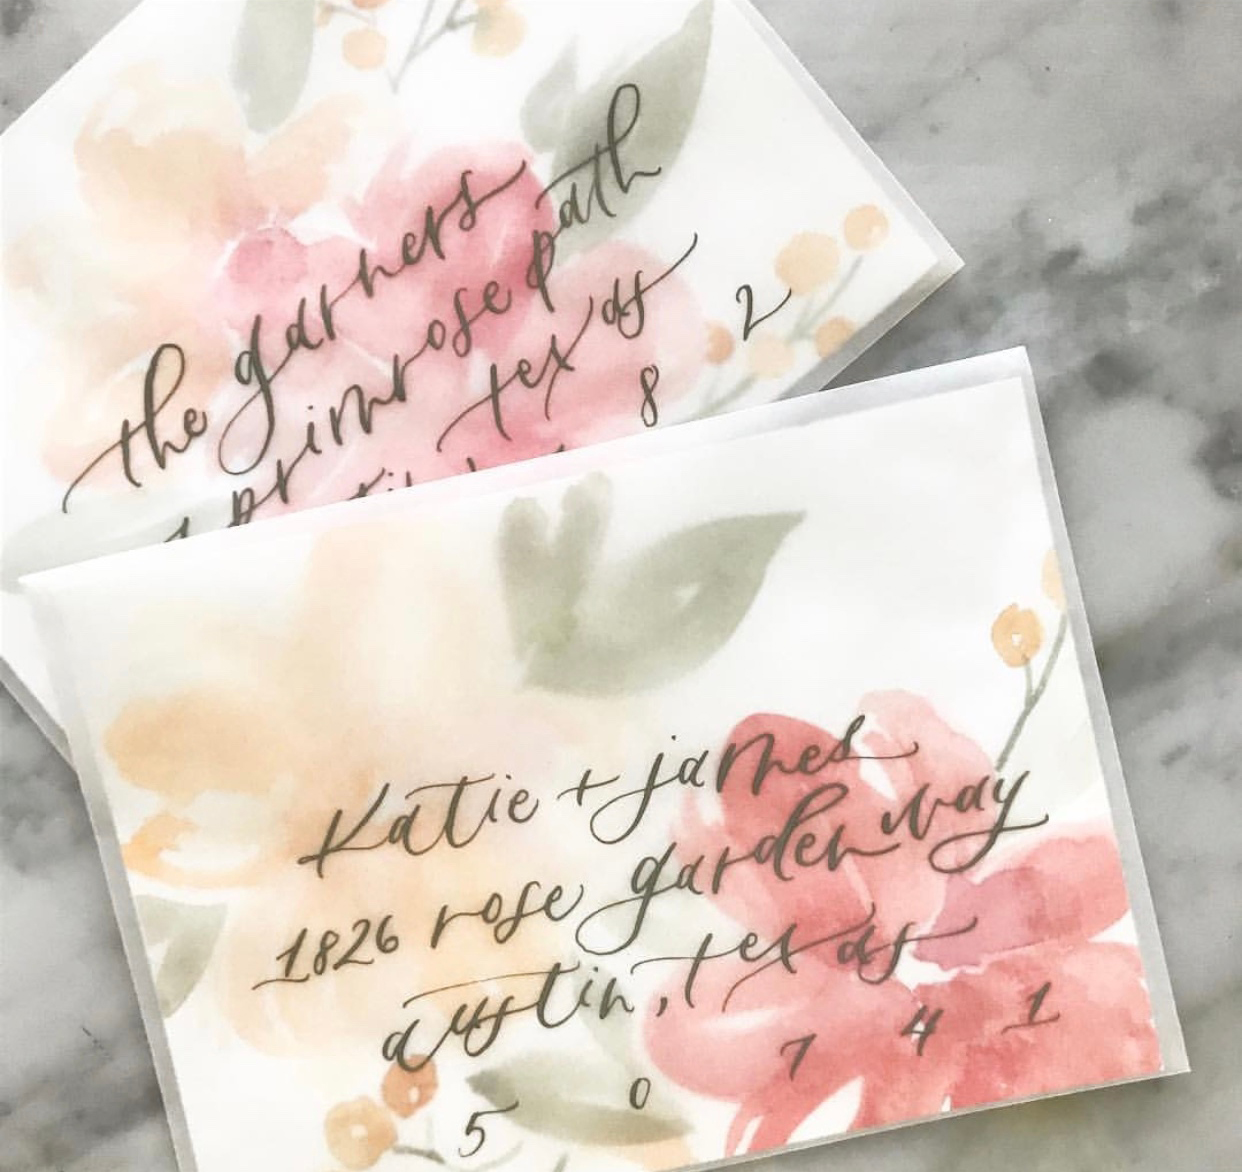 the garners
primrose path
texas
8 2
Katie + james
1826 rose garden way
austin, texas
5 0 7 4 1